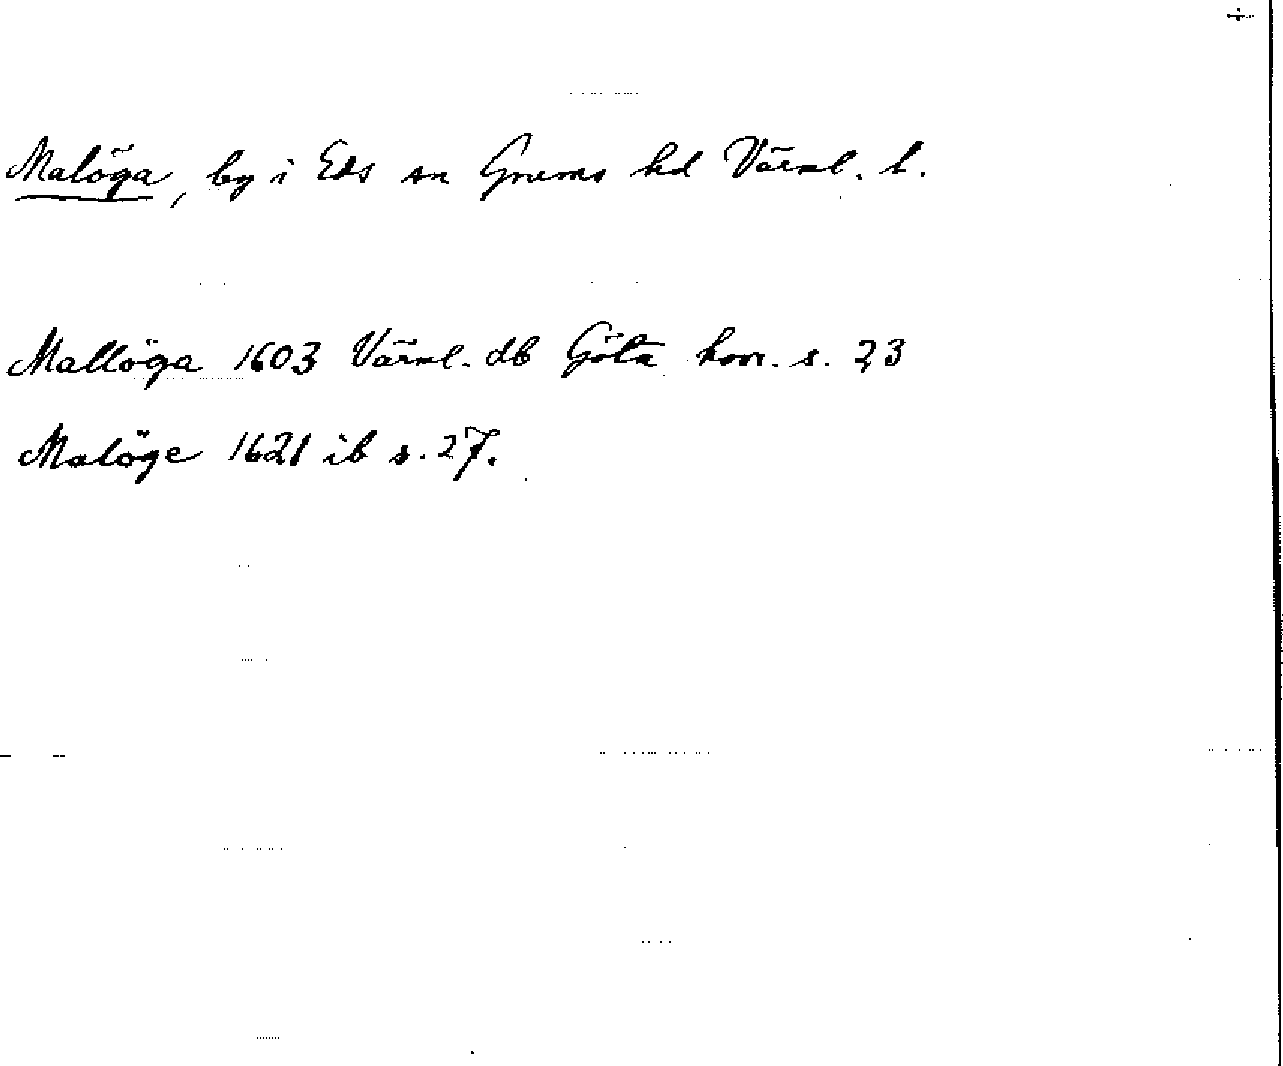 Malöga, by i Eds sn Grums hd Värml. l.
Mallöga 1603 Värml. db Göta hovr. s. 23
Malöge 1621 ib s. 27.